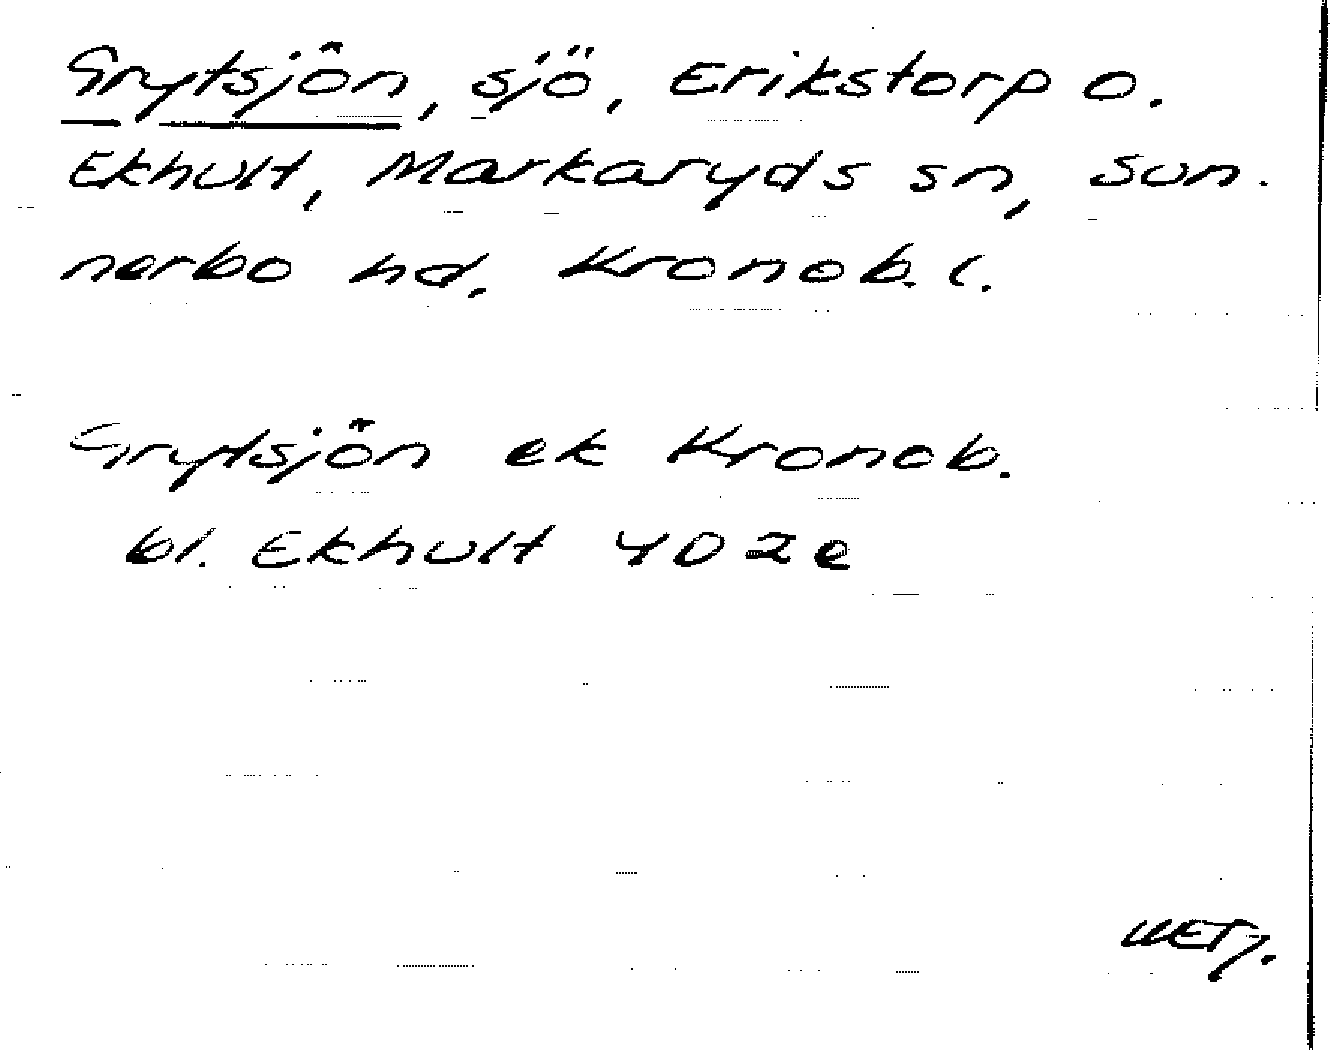 Grytsjön, sjö, Erikstorp o.
Ekhult, Markaryds sn, Sun.
nerbo hd. Kronob. l.
Grytsjön ek Kronob.
bl. Ekhult 4D2e